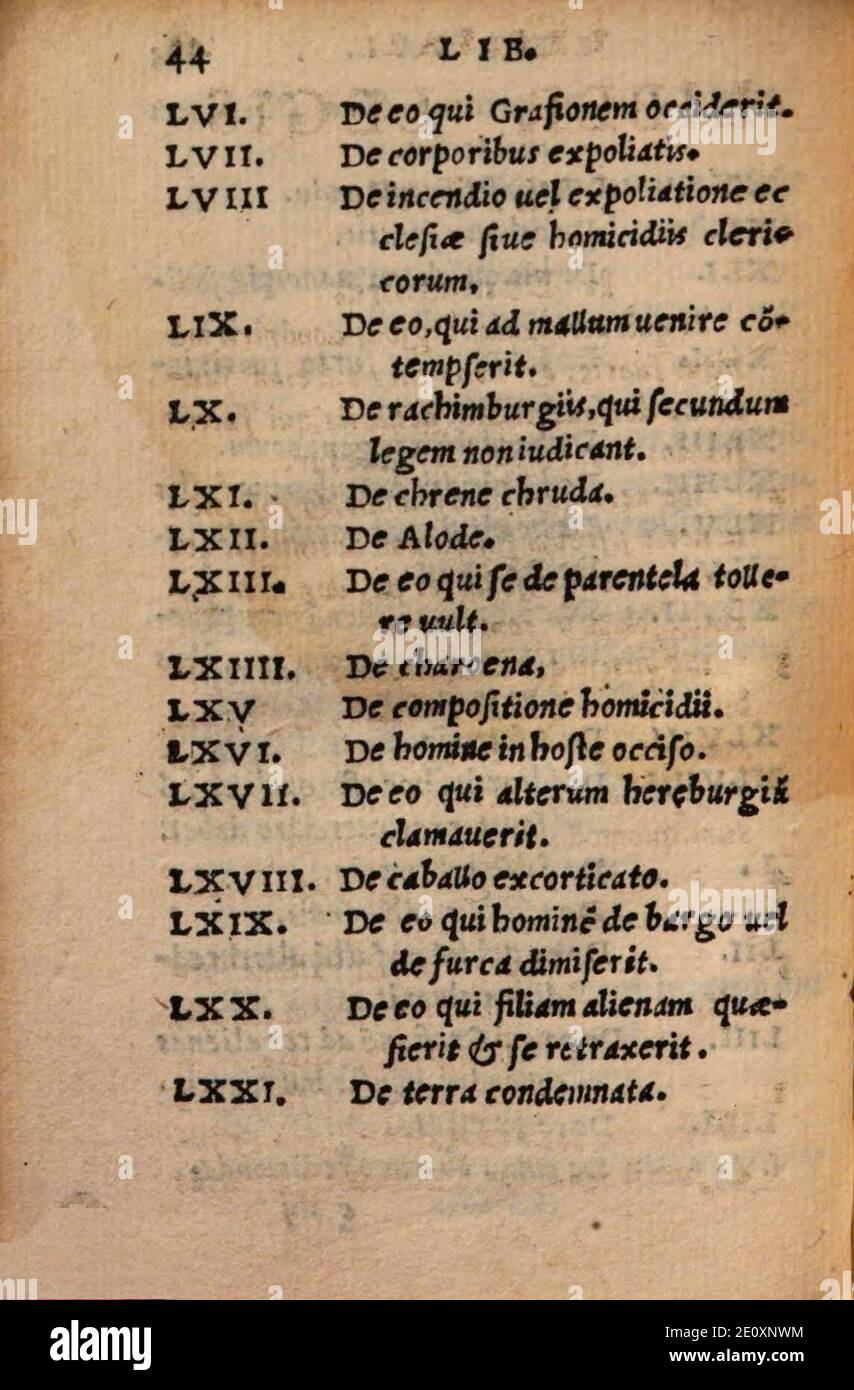 44 LIB.
LVI. De eo qui Grafionem occiderit.
LVII. De corporibus expoliatis.
LVIII De incendio uel expoliatione ec
clesiæ siue homicidiis cleri-
corum,
LIX. De eo, qui ad mallum uenire cō-
tempserit.
LX. De rachimburgiis, qui secundum
legem non iudicant.
LXI. De chrene chruda.
LXII. De Alode.
LXIII. De eo qui se de parentela tolle-
re uult.
LXIIII. De charoena,
LXV De compositione homicidii.
LXVI. De homine in hoste occiso.
LXVII. De eo qui alterum hereburgiū
clamauerit.
LXVIII. De caballo excorticato.
LXIX. De eo qui hominē de bargo uel
de furca dimiserit.
LXX. De eo qui filiam alienam quæ-
sierit & se retraxerit.
LXXI. De terra condemnata.
alamy
Image ID: 2E0XNWM
www.alamy.com